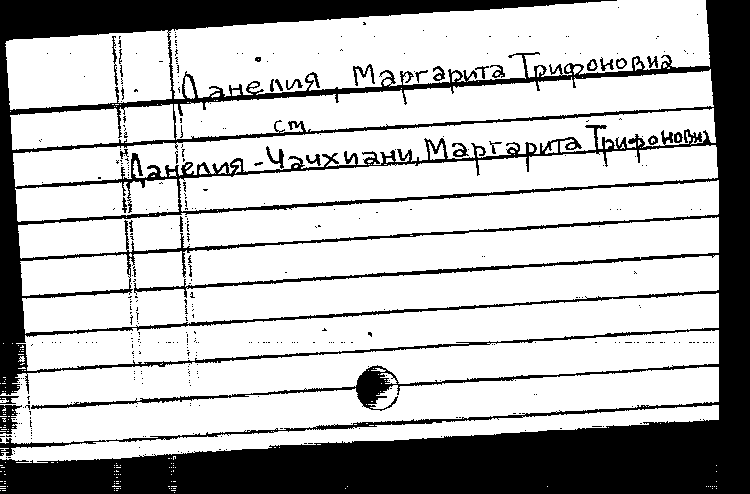 Данелия, Маргарита Трифоновна
см.
Данелия-Чачхиани, Маргарита Трифоновна